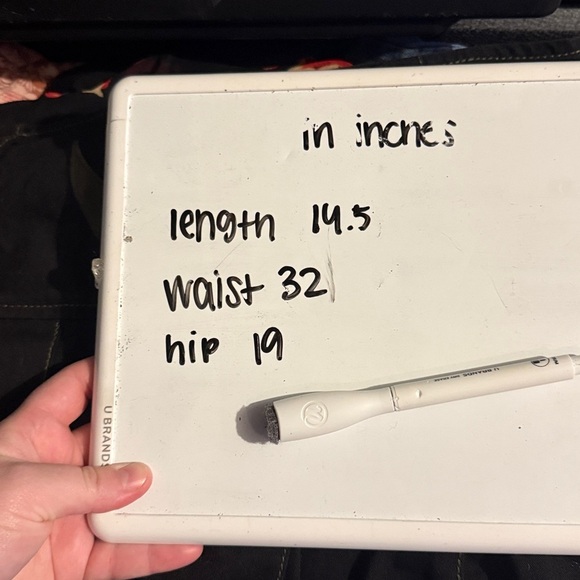 in inches
length 14.5
waist 32
hip 19
U BRANDS
U BRANDS